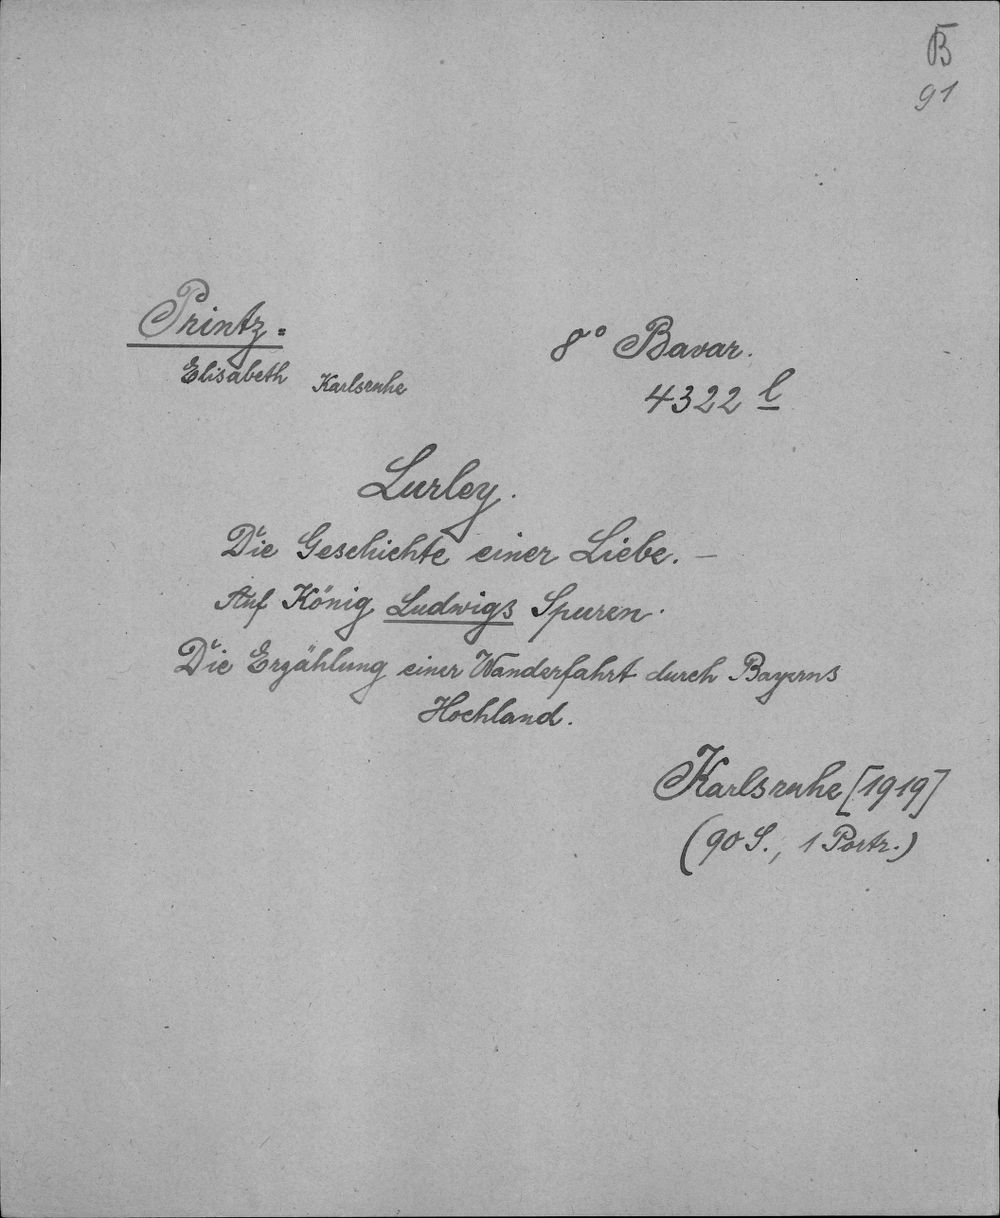 B
91
Printz =
8° Bavar.
Elisabeth Karlsruhe
4322 l
Lurley.
Die Geschichte einer Liebe. –
Auf König Ludwigs Spuren.
Die Erzählung einer Wanderfahrt durch Bayerns
Hochland.
Karlsruhe [1919]
(90 S., 1 Portr.)